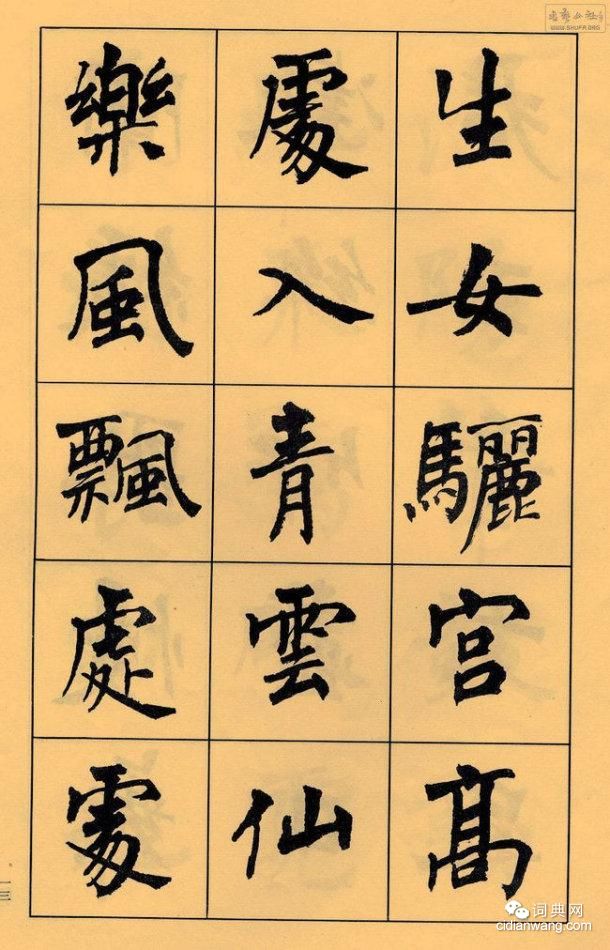 生女驪宫髙
處入青雲仙
樂風飄處處
一三
WWW.SHUFA.ORG
词典网
cidianwang.com